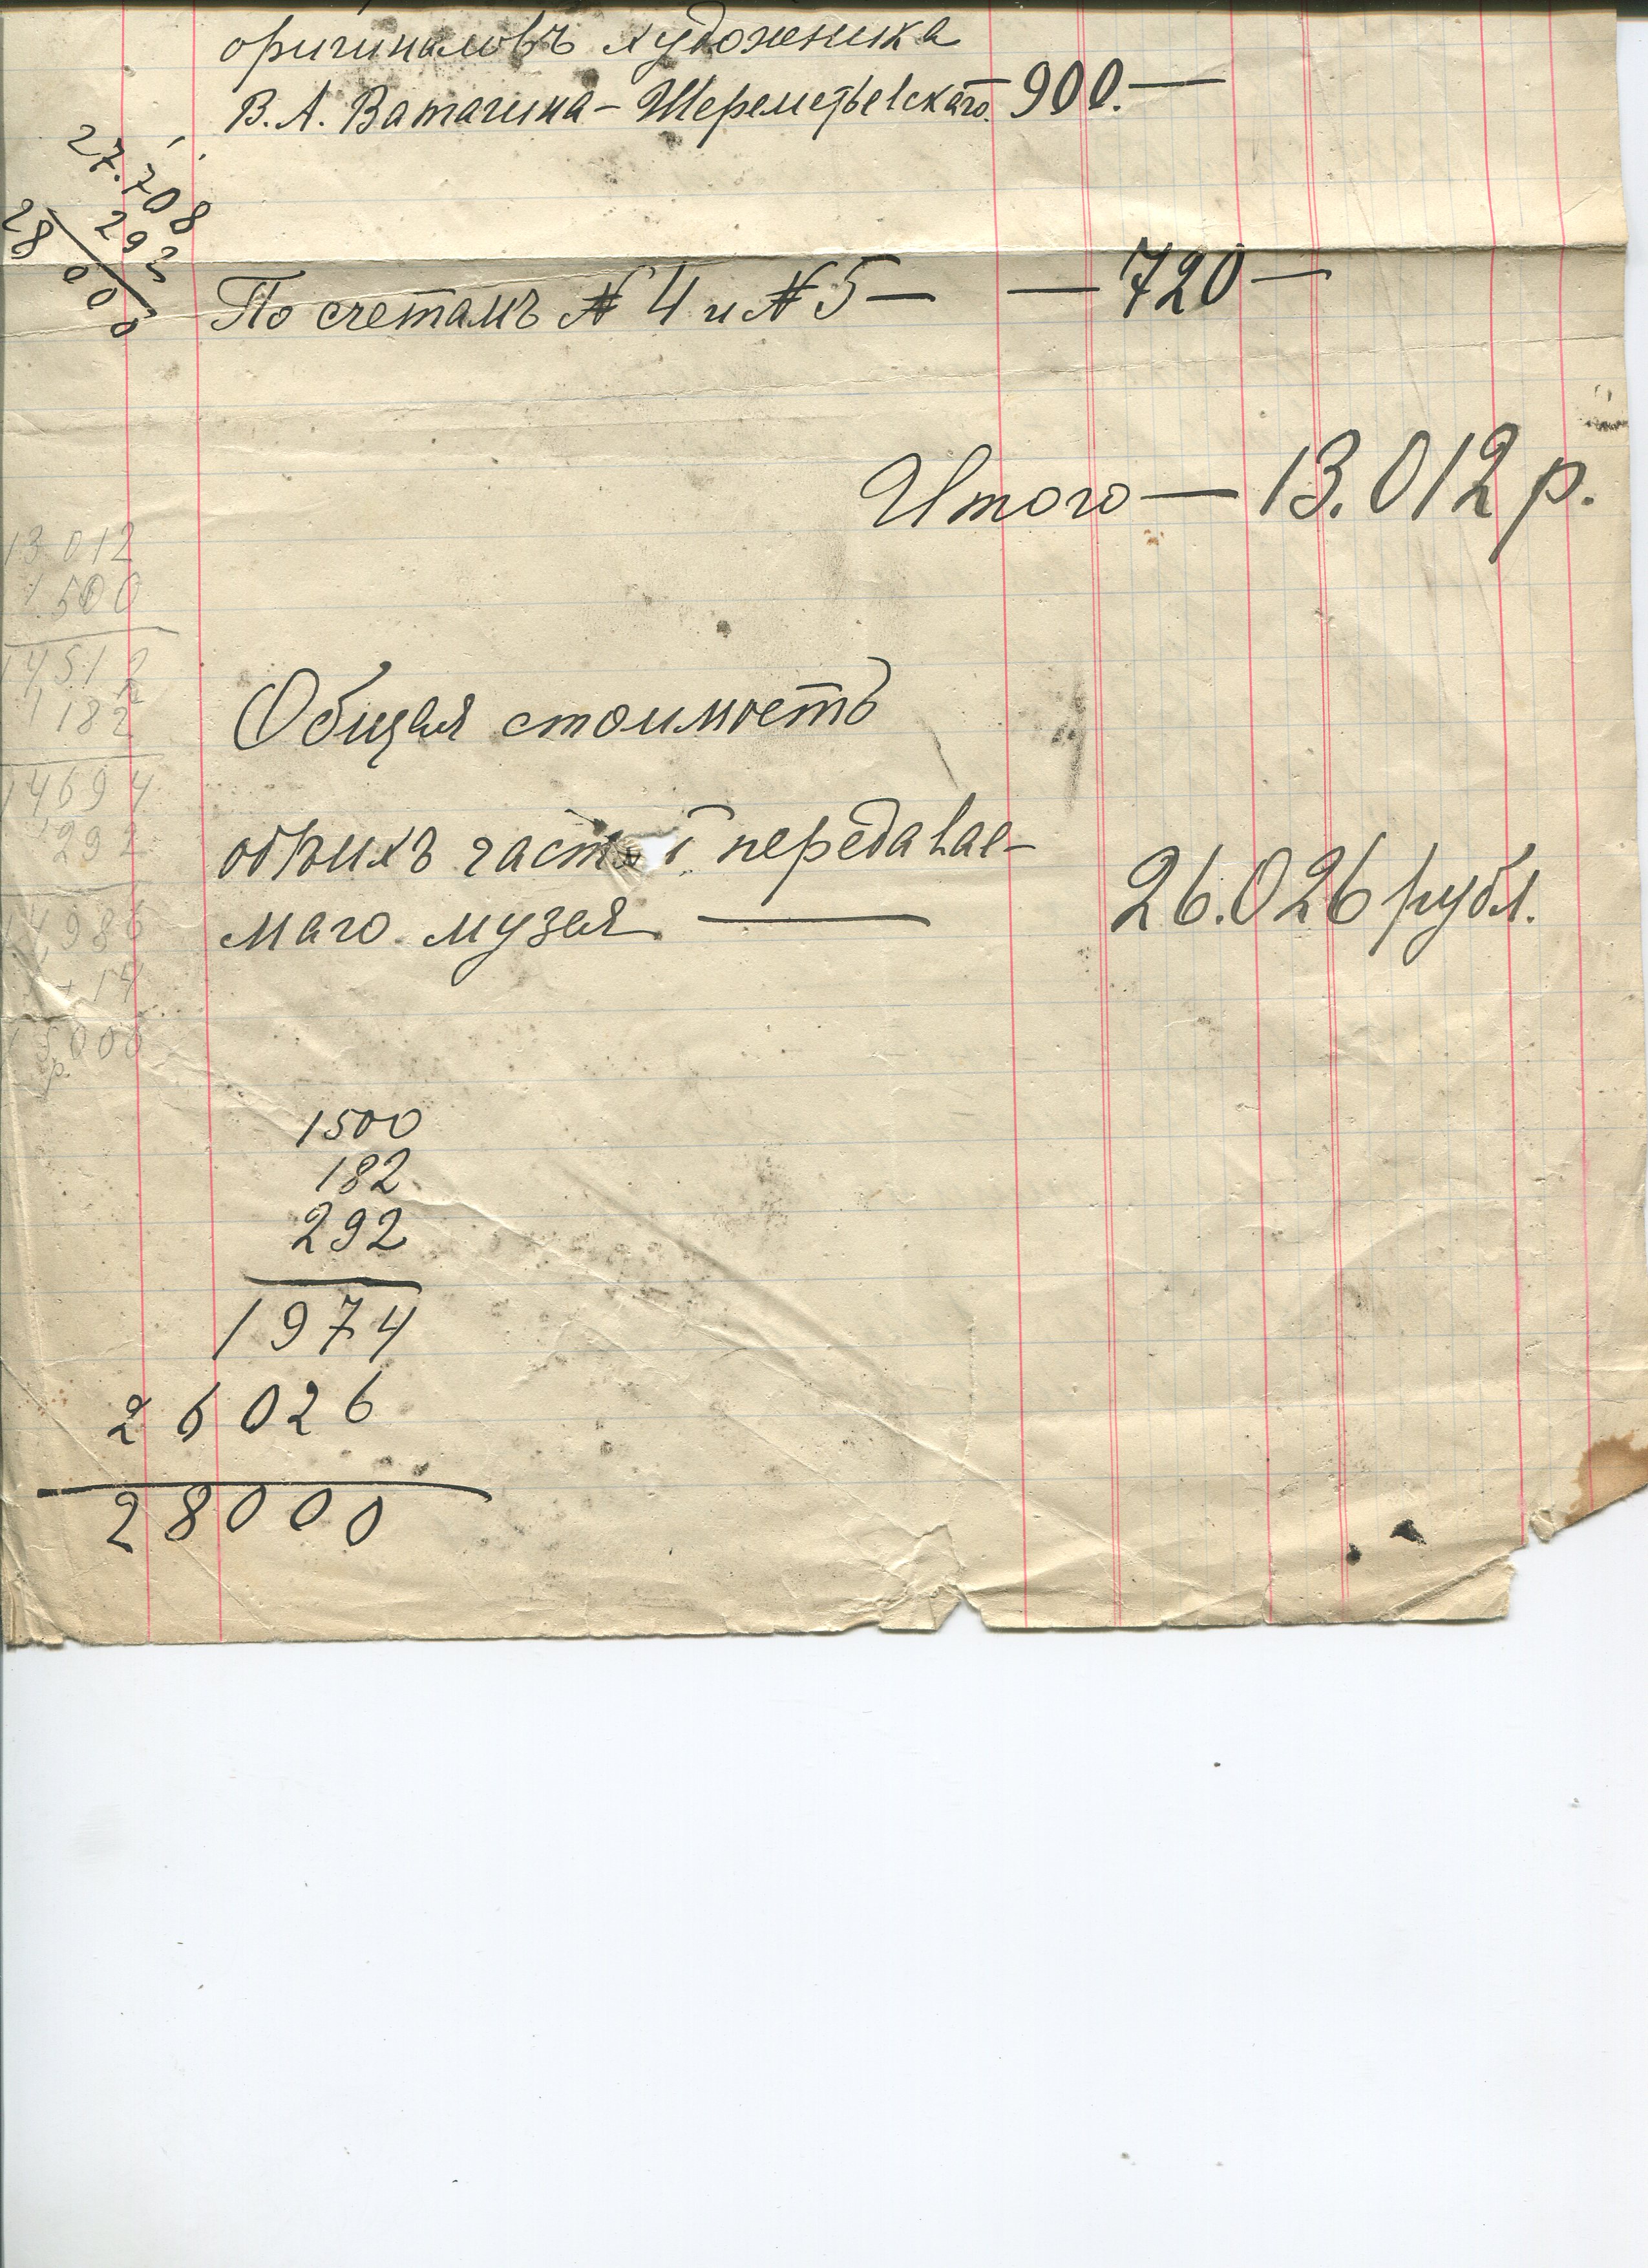 оригиналовъ художника
В. А. Ватагина – Шереметьевскаго. 900. —
27.708
292
28 000
По счетамъ № 4 и № 5 — — 720 —
Итого — 13.012 р.
13 012
1 500
14512
182
14694
292
14986
14
15000
р.
Общая стоимость
обѣихъ частей передавае-
маго музея — 26.026 рубл.
1500
182
292
1974
26026
28000